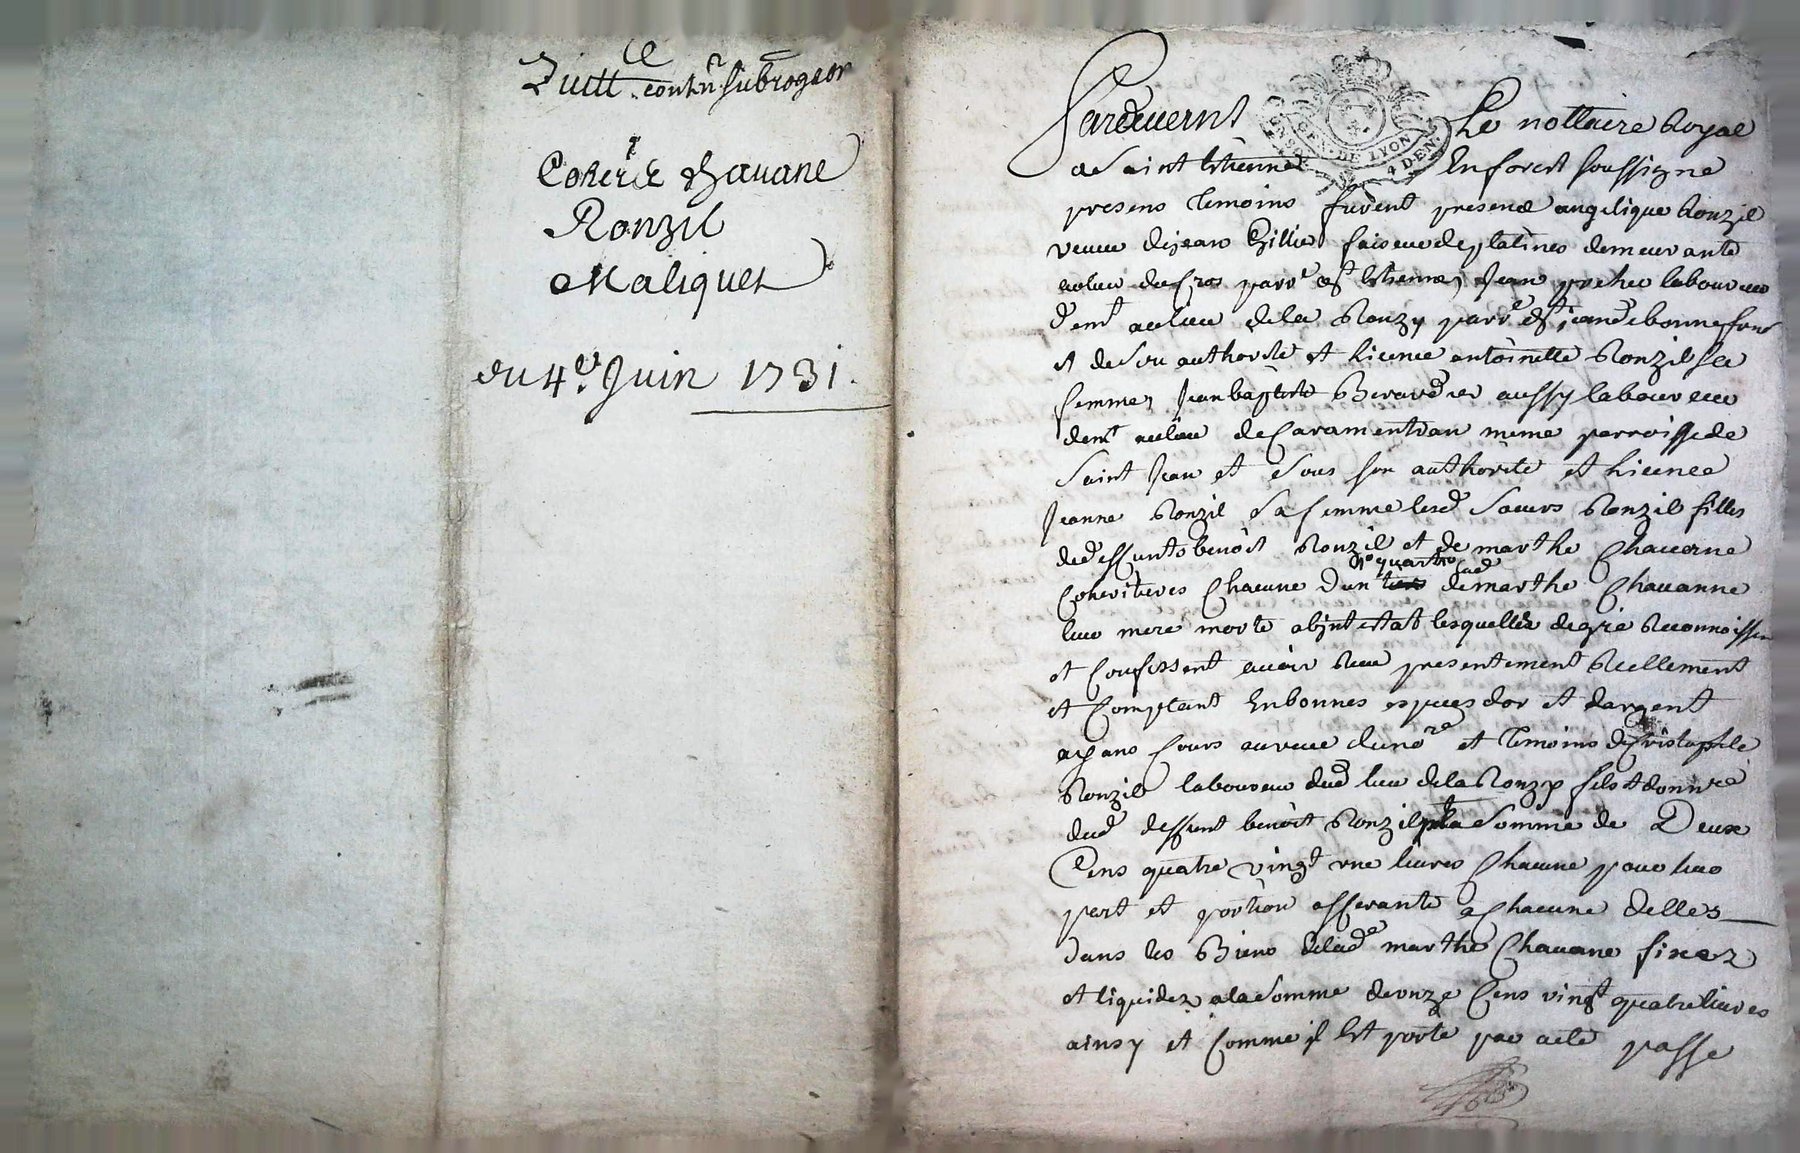 Quitt.ce contn.t subrogaon
Coheri.e Chavane
Ronzil
Maliquet
du 4.e Juin 1731.
Pardevent Le nottaire Royal
GEN. DE LYON 4 DEN.
a Saint Etienne En forest soussigne
presens temoins furent presend angelique Ronzil
veuve de jean Gillier faiseur de platines demeurante
au lieu du Cros parr.e de s.t Etienne, Jean pichee laboureur
dem.t au lieu de la Ronzy parr.e de s.t jean de bonnefond
et de son authorité et licence antoinette Ronzil sa
femme, Jean baptiste Berardier aussy laboureur
dem.t au lieu de Caramentran meme parroisse de
Saint Jean et Sous son authorité et Licence
Jeanne Ronzil Sa femme lesd Soeurs Ronzil filles
de deffunts benoit Ronzil et de marthe Chavane
un quart lad
Coheritieres Chacune dun tiers de marthe Chavanne
leur mere morte abjntestat lesquelles de gré Reconnoissen
et Confessent avoir Receu presentement Reellement
et Comptant En bonnes especes dor et dargent
ayans Cours au veu du no.re et temoins de Cristophle
Ronzil laboureur dud lieu de la Ronzy fils et donn.re
dud deffunt benoit Ronzil la Somme de Deux
Cens quatre vingt une livres Chacune pour leur
part et portion afferante a Chacune delles
dans les Biens de lad.e marthe Chavane fixez
et liquidez a la Somme de onze Cens vingt quatre livres
ainsy et Comme jl Est porté par acte passé